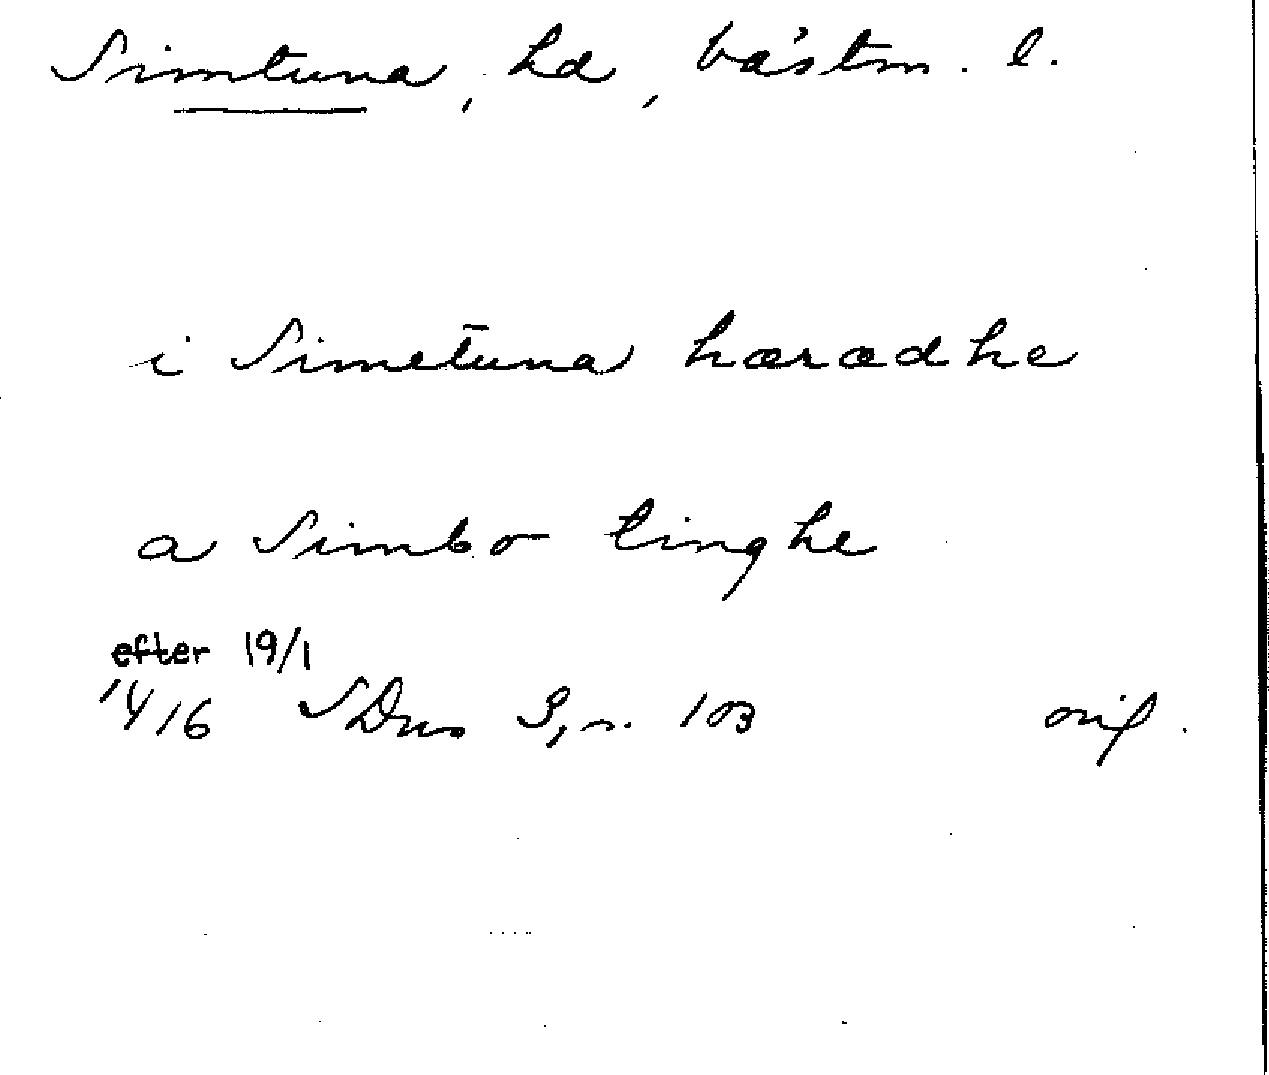 Simtuna, hd, Västm. l.
i Simetuna hærædhe
a Simbo tinghe
efter 19/1
1416 SDns 3, n. 103 orig.